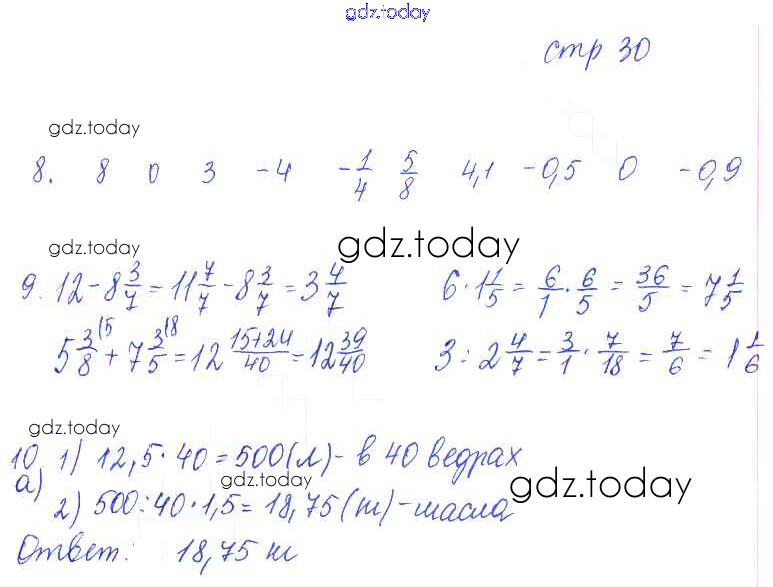 gdz.today
стр 30
gdz.today
8. 8 0 3 -4 -1/4 5/8 4,1 -0,5 0 -0,9
gdz.today gdz.today
9. 12 - 8 3/7 = 11 7/7 - 8 3/7 = 3 4/7 6 · 1 1/5 = 6/1 · 6/5 = 36/5 = 7 1/5
5 3/8 (5 + 7 3/5 (8 = 12 15+24/40 = 12 39/40 3 : 2 4/7 = 3/1 · 7/18 = 7/6 = 1 1/6
gdz.today
10 1) 12,5 · 40 = 500 (л) - в 40 ведрах
а)
gdz.today gdz.today
2) 500 : 40 · 1,5 = 18,75 (т) - масла
Ответ: 18,75 т